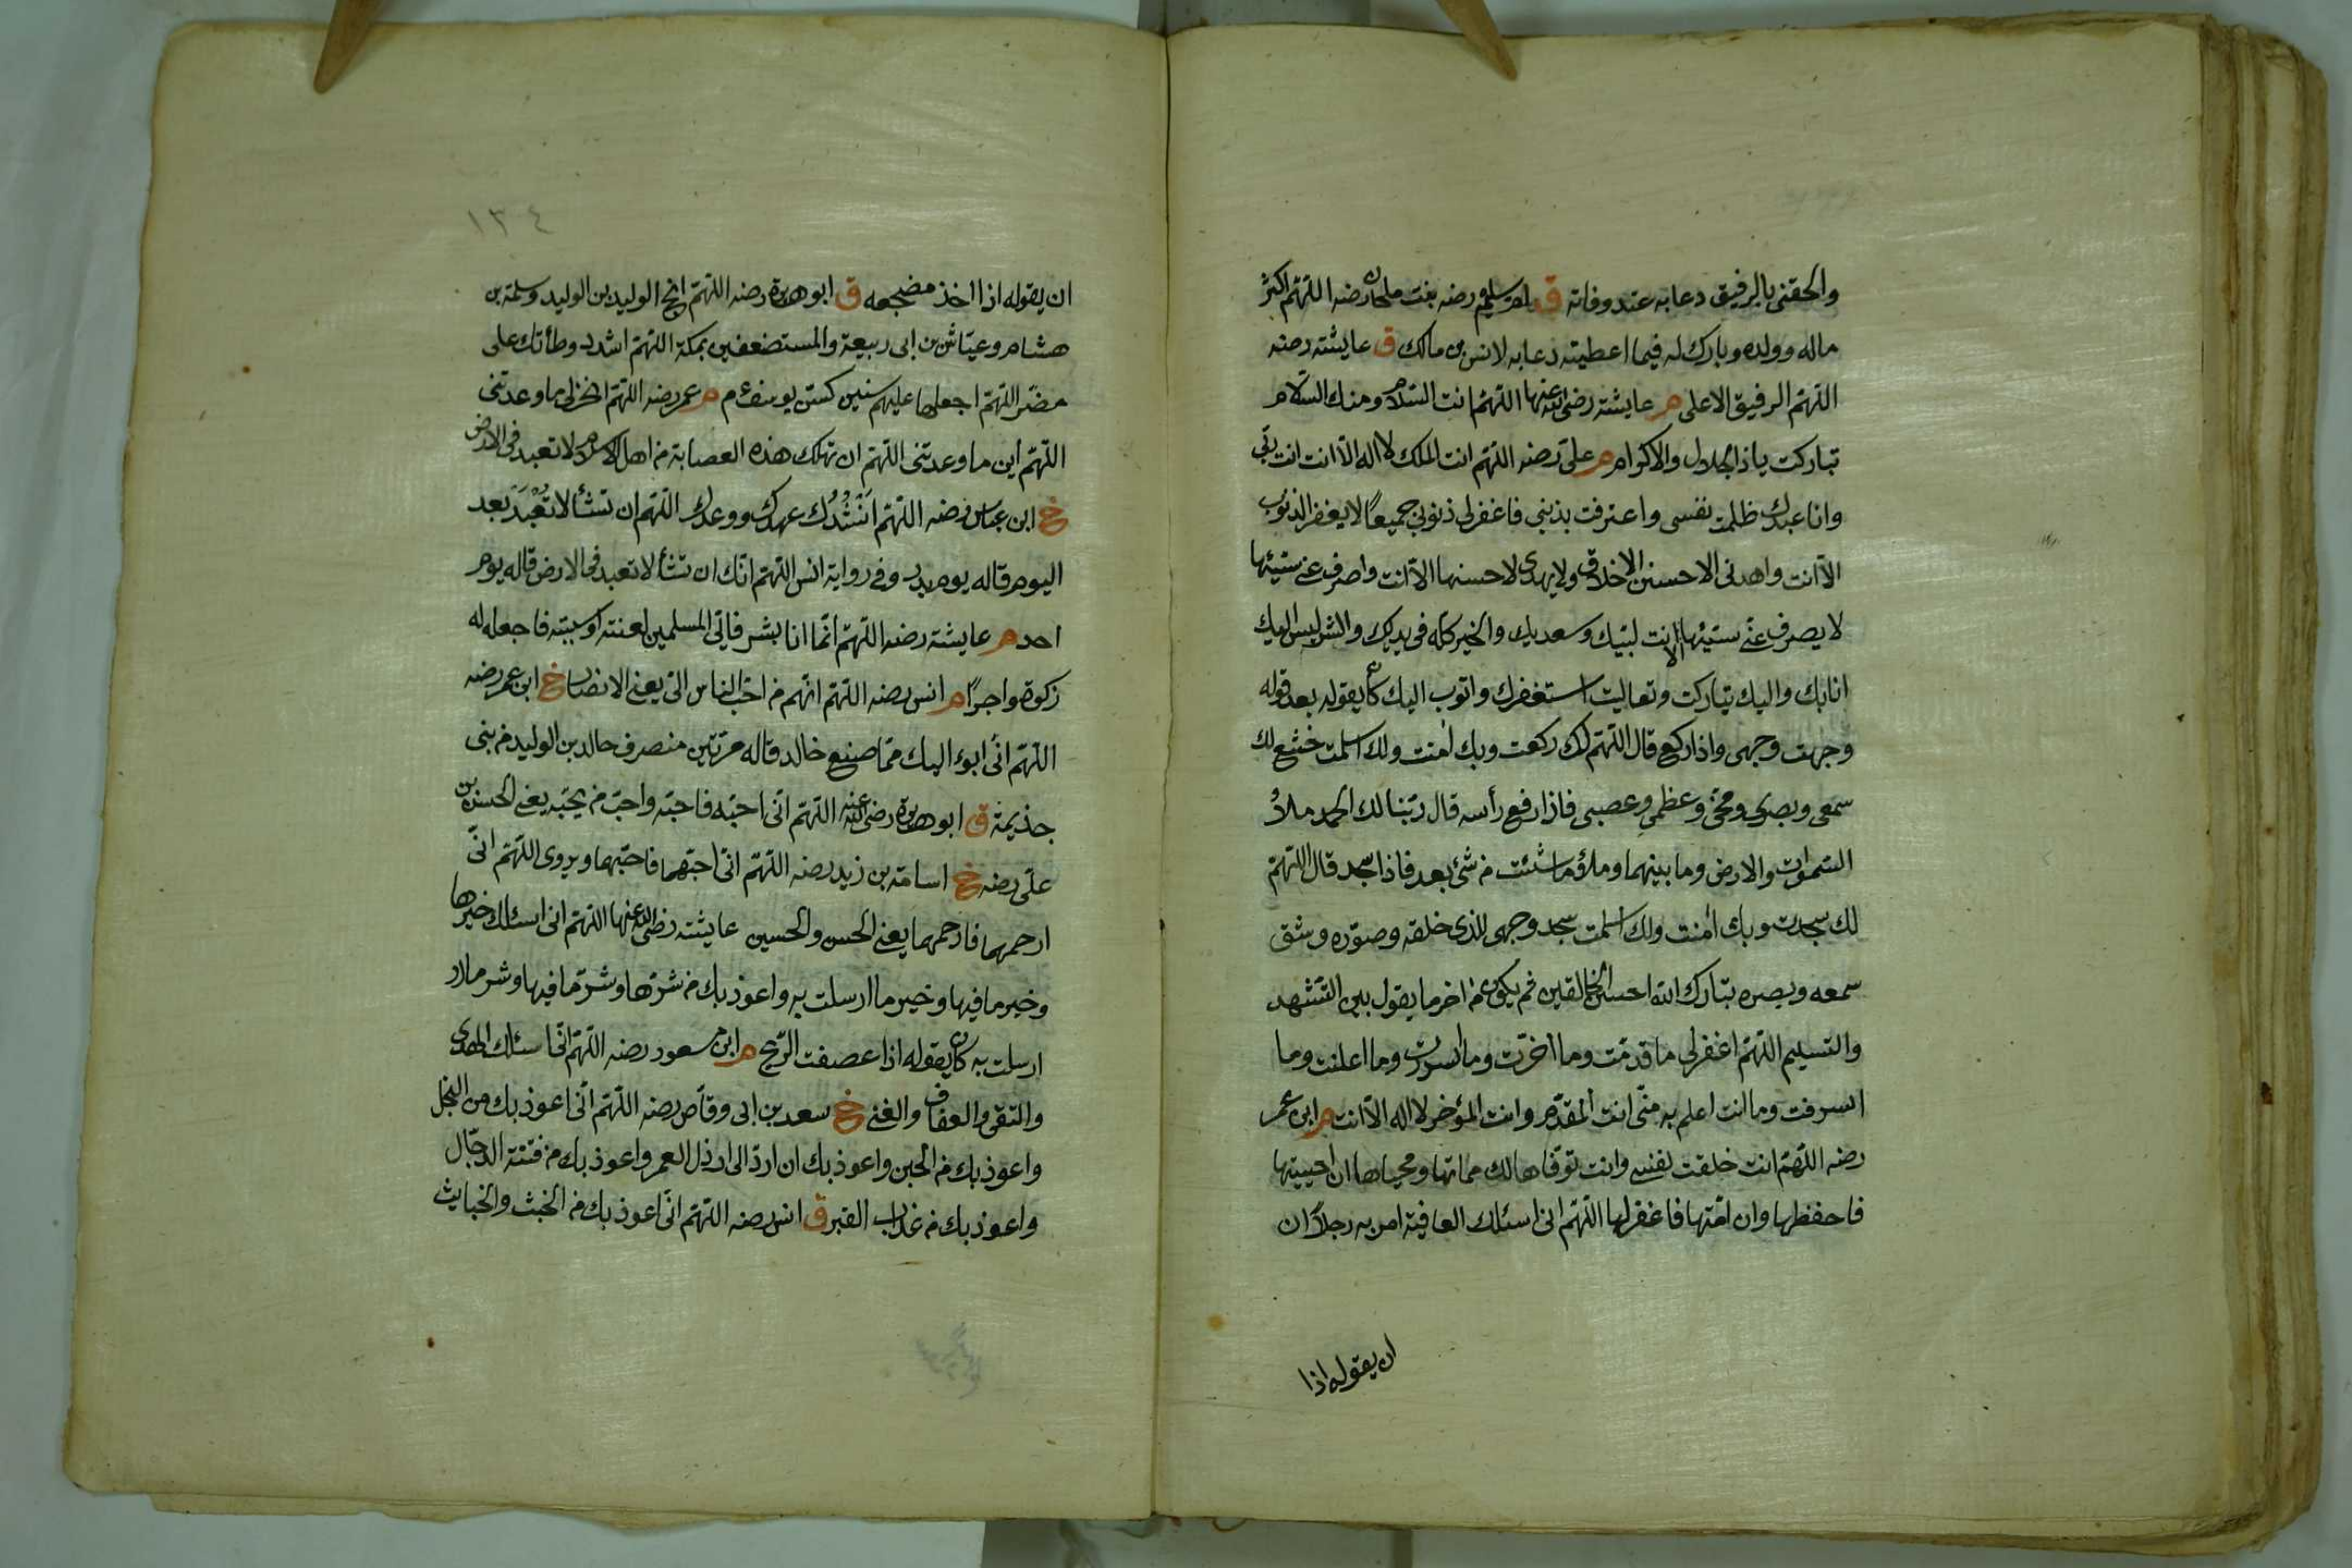 والحقنى بالرفيق دعا به عند وفاته ق ام سليم رضه بنت ملحان رضه اللهم اكثر
ماله وولده وبارك له فيما اعطيته دعا به لانس بن مالك ق عايشته رضه
اللهم الرفيق الاعلى م عايشته رضى الله عنها اللهم انت السلام ومنك السلام
تباركت ياذا الجلال والاكرام م على رضه اللهم انت الملك لا اله الا انت انت ربى
وانا عبدك ظلمت نفسى واعترفت بذنبى فاغفرلى ذنوبى جميعًا لا يغفر الذنوب
الا انت واهدنى الاحسن الاخلاق ولا يهدى لاحسنها الا انت واصرف عنى سيئها
لا يصرف عنى سيئها الا انت لبيك وسعديك والخير كله فى يديك والشر ليس اليك
انابك واليك تباركت وتعاليت استغفرك واتوب اليك كان يقوله بعد قوله
وجهت وجهى واذا ركع قال اللهم لك ركعت وبك امنت ولك اسلمت خشع لك
سمعى وبصرى ومخى وعظمى وعصبى فاذا رفع رأسه قال ربنا لك الحمد ملأ
السموات والارض وما بينهما وملؤ ما شئت من شئ بعد فاذا سجد قال اللهم
لك سجدت وبك امنت ولك اسلمت سجد وجهى للذى خلقه وصوره وشق
سمعه وبصره تبارك الله احسن الخالقين ثم يكون من اخر ما يقول بين التشهد
والتسليم اللهم اغفرلى ما قدمت وما اخرت وما اسررت وما اعلنت وما
اسرفت وما انت اعلم به منى انت المقدم وانت المؤخر لا اله الا انت م ابن عمر
رضه اللهم انت خلقت نفسى وانت توفاها لك مماتها ومحياها ان احييتها
فاحفظها وان امتها فاغفرلها اللهم انى اسئلك العافية امر به رجلا ان
ان يقوله اذا
١٣٤
ان يقوله اذا اخذ مضجعه ق ابو هريرة رضه اللهم انج الوليد بن الوليد وسلمة بن
هشام وعياش بن ابى ربيعة والمستضعفين بمكة اللهم اشدد وطأتك على
مضر اللهم اجعلها عليهم سنين كسنى يوسف م عمر رضه اللهم انجزلى ما وعدتنى
اللهم اين ما وعدتنى اللهم ان تهلك هذه العصابة من اهل الاسلام لا تعبد فى الارض
خ ابن عباس رضه اللهم انشدك عهدك ووعدك اللهم ان تشأ لا تعبد بعد
اليوم قاله يوم بدر وفى رواية انس اللهم انك ان تشأ لا تعبد فى الارض قاله يوم
احد م عايشته رضه اللهم انما انا بشر فاى المسلمين لعنته او سببته فاجعله له
زكوة واجرًا م انس رضه اللهم انهم من احب الناس الى يعنى الانصار خ ابن عمر رضه
اللهم انى ابوء اليك مما صنع خالد قاله مرتين منصرف خالد بن الوليد من بنى
جذيمة ق ابو هريرة رضى الله عنه اللهم انى احبه فاحبه واحب من يحبه يعنى الحسن بن
على رضه خ اسامة بن زيد رضه اللهم انى احبهما فاحبهما ويروى اللهم انى
ارحمهما فارحمهما يعنى الحسن والحسين عايشته رضى الله عنها اللهم انى اسئلك خيرها
وخير ما فيها وخير ما ارسلت به واعوذ بك من شرها وشر ما فيها وشر ما
ارسلت به كان يقوله اذا عصفت الريح م ابن مسعود رضه اللهم انى اسئلك الهدى
والتقى والعفاف والغنى خ سعد بن ابى وقاص رضه اللهم انى اعوذ بك من البخل
واعوذ بك من الجبن واعوذ بك ان ارد الى ارذل العمر واعوذ بك من فتنة الدجال
واعوذ بك من عذاب القبر ق انس رضه اللهم انى اعوذ بك من الخبث والخبايث